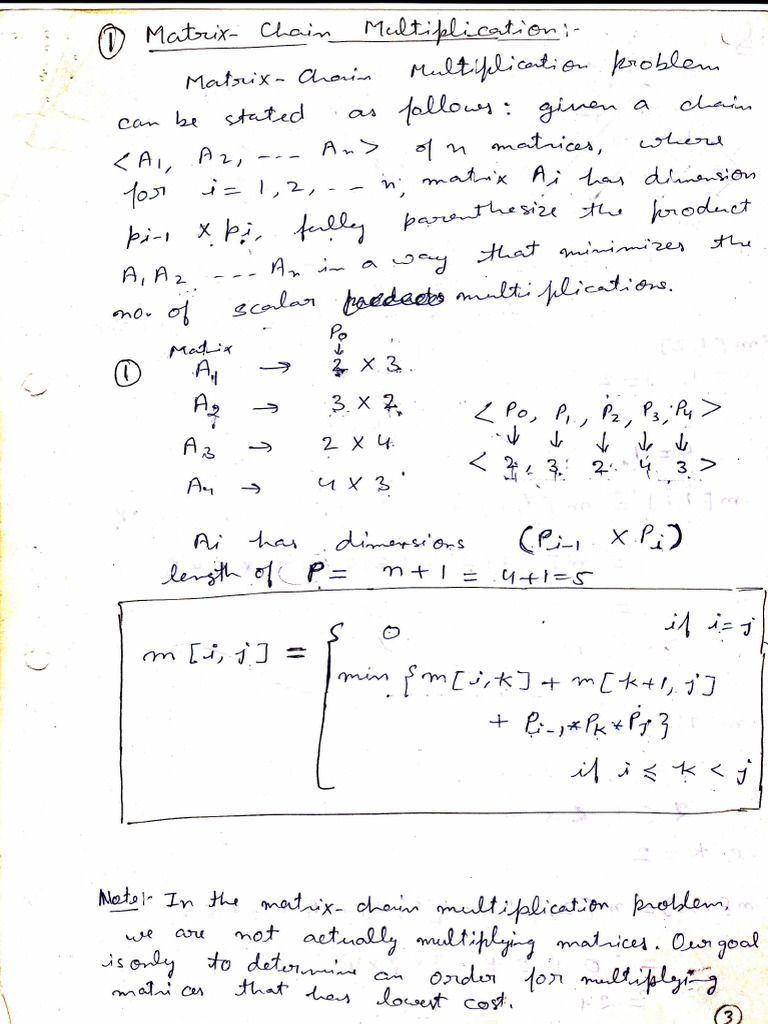 ① Matrix- Chain Multiplication:-
Matrix- Chain Multiplication problem
can be stated as follows: given a chain
<A1, A2, --- An> of n matrices, where
for i = 1, 2, -- n, matrix Ai has dimension
pi-1 × pi, fully parenthesize the product
A1 A2 --- An in a way that minimizes the
no. of scalar multiplications.
Matrix P0
↓
① A1 → 2 × 3
A2 → 3 × 2
A3 → 2 × 4
A4 → 4 × 3
< P0, P1, P2, P3, P4 >
↓ ↓ ↓ ↓ ↓
< 2, 3 2 4 3 >
Ai has dimensions (Pi-1 × Pi)
length of P = n+1 = 4+1=5
m[i, j] = { 0 if i=j
min {m[i,k] + m[k+1, j]
+ Pi-1*Pk*Pj}
if i ≤ k < j
Note:- In the matrix-chain multiplication problem,
we are not actually multiplying matrices. Our goal
is only to determine an order for multiplying
matrices that has lowest cost.
③